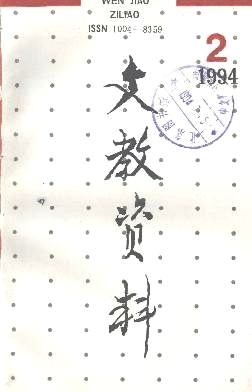 WEN JIAO
ZILIAO
ISSN 1004—8359
2
1994
文教资料